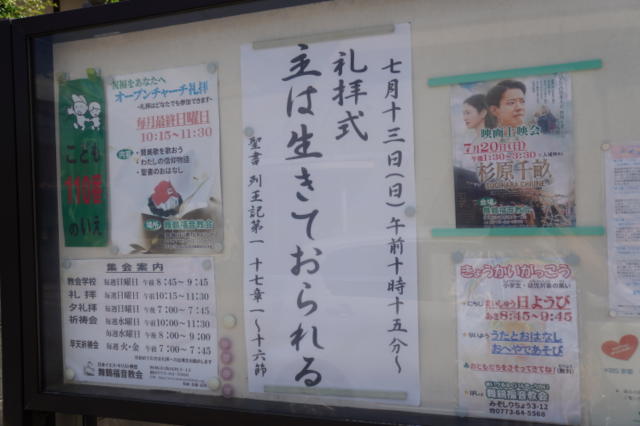 こども
110番
のいえ
祝福をあなたへ
オープンチャーチ礼拝
~礼拝はどなたでも参加できます~
毎月最終日曜日
10:15~11:30
内容
・賛美歌を歌おう
・わたしの信仰物語
・聖書のおはなし
場所
舞鶴福音教会
集会案内
教会学校 毎週日曜日 午前 8:45~9:45
礼拝 毎週日曜日 午前10:15~11:30
夕礼拝 毎週日曜日 午後 7:00~7:45
祈祷会 毎週水曜日 午前10:30~11:30
毎週水曜日 午後 8:00~9:00
早天祈祷会 毎週火・金 午前 7:00~7:45
日本イエス・キリスト教団
舞鶴福音教会
七月十三日(日)午前十時十五分~
礼拝式
主は生きておられる
聖書 列王記第一 十七章一~十六節
映画上映会
7/20(日)
午後1:30~3:30
杉原千畝
SUGIHARA CHIUNE
会場
舞鶴福音教会
きょうかいがっこう
小学生・幼児対象の集い
まいしゅう日ようび
あさ8:45~9:45
うたとおはなし
おへやであそび
おともだちをさそってきてね!(無料)
舞鶴福音教会
みぞしりちょう3-12
☎0773-64-5568